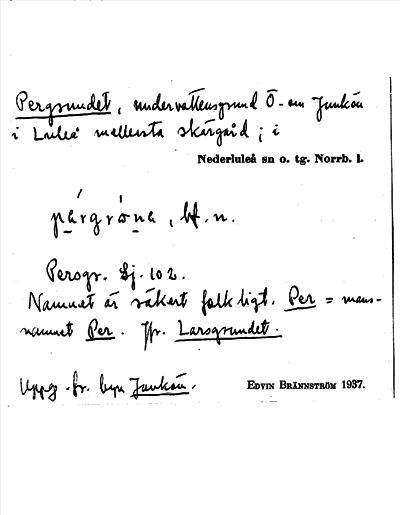 Pergrundet, undervattensgrund Ö-om Junkön
i Luleå mellersta skärgård; i
Nederluleå sn o. tg. Norrb. l.
párgró̱na, bf. n.
Persgr. Sj. 102.
Namnet är säkert folkligt. Per = mans-
namnet Per. Jfr. Larsgrundet.
Uppg. fr. byn Junkön.
EDVIN BRÄNNSTRÖM 1937.